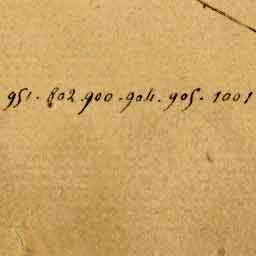 951 . 802 . 900 . 904 . 905 . 1001